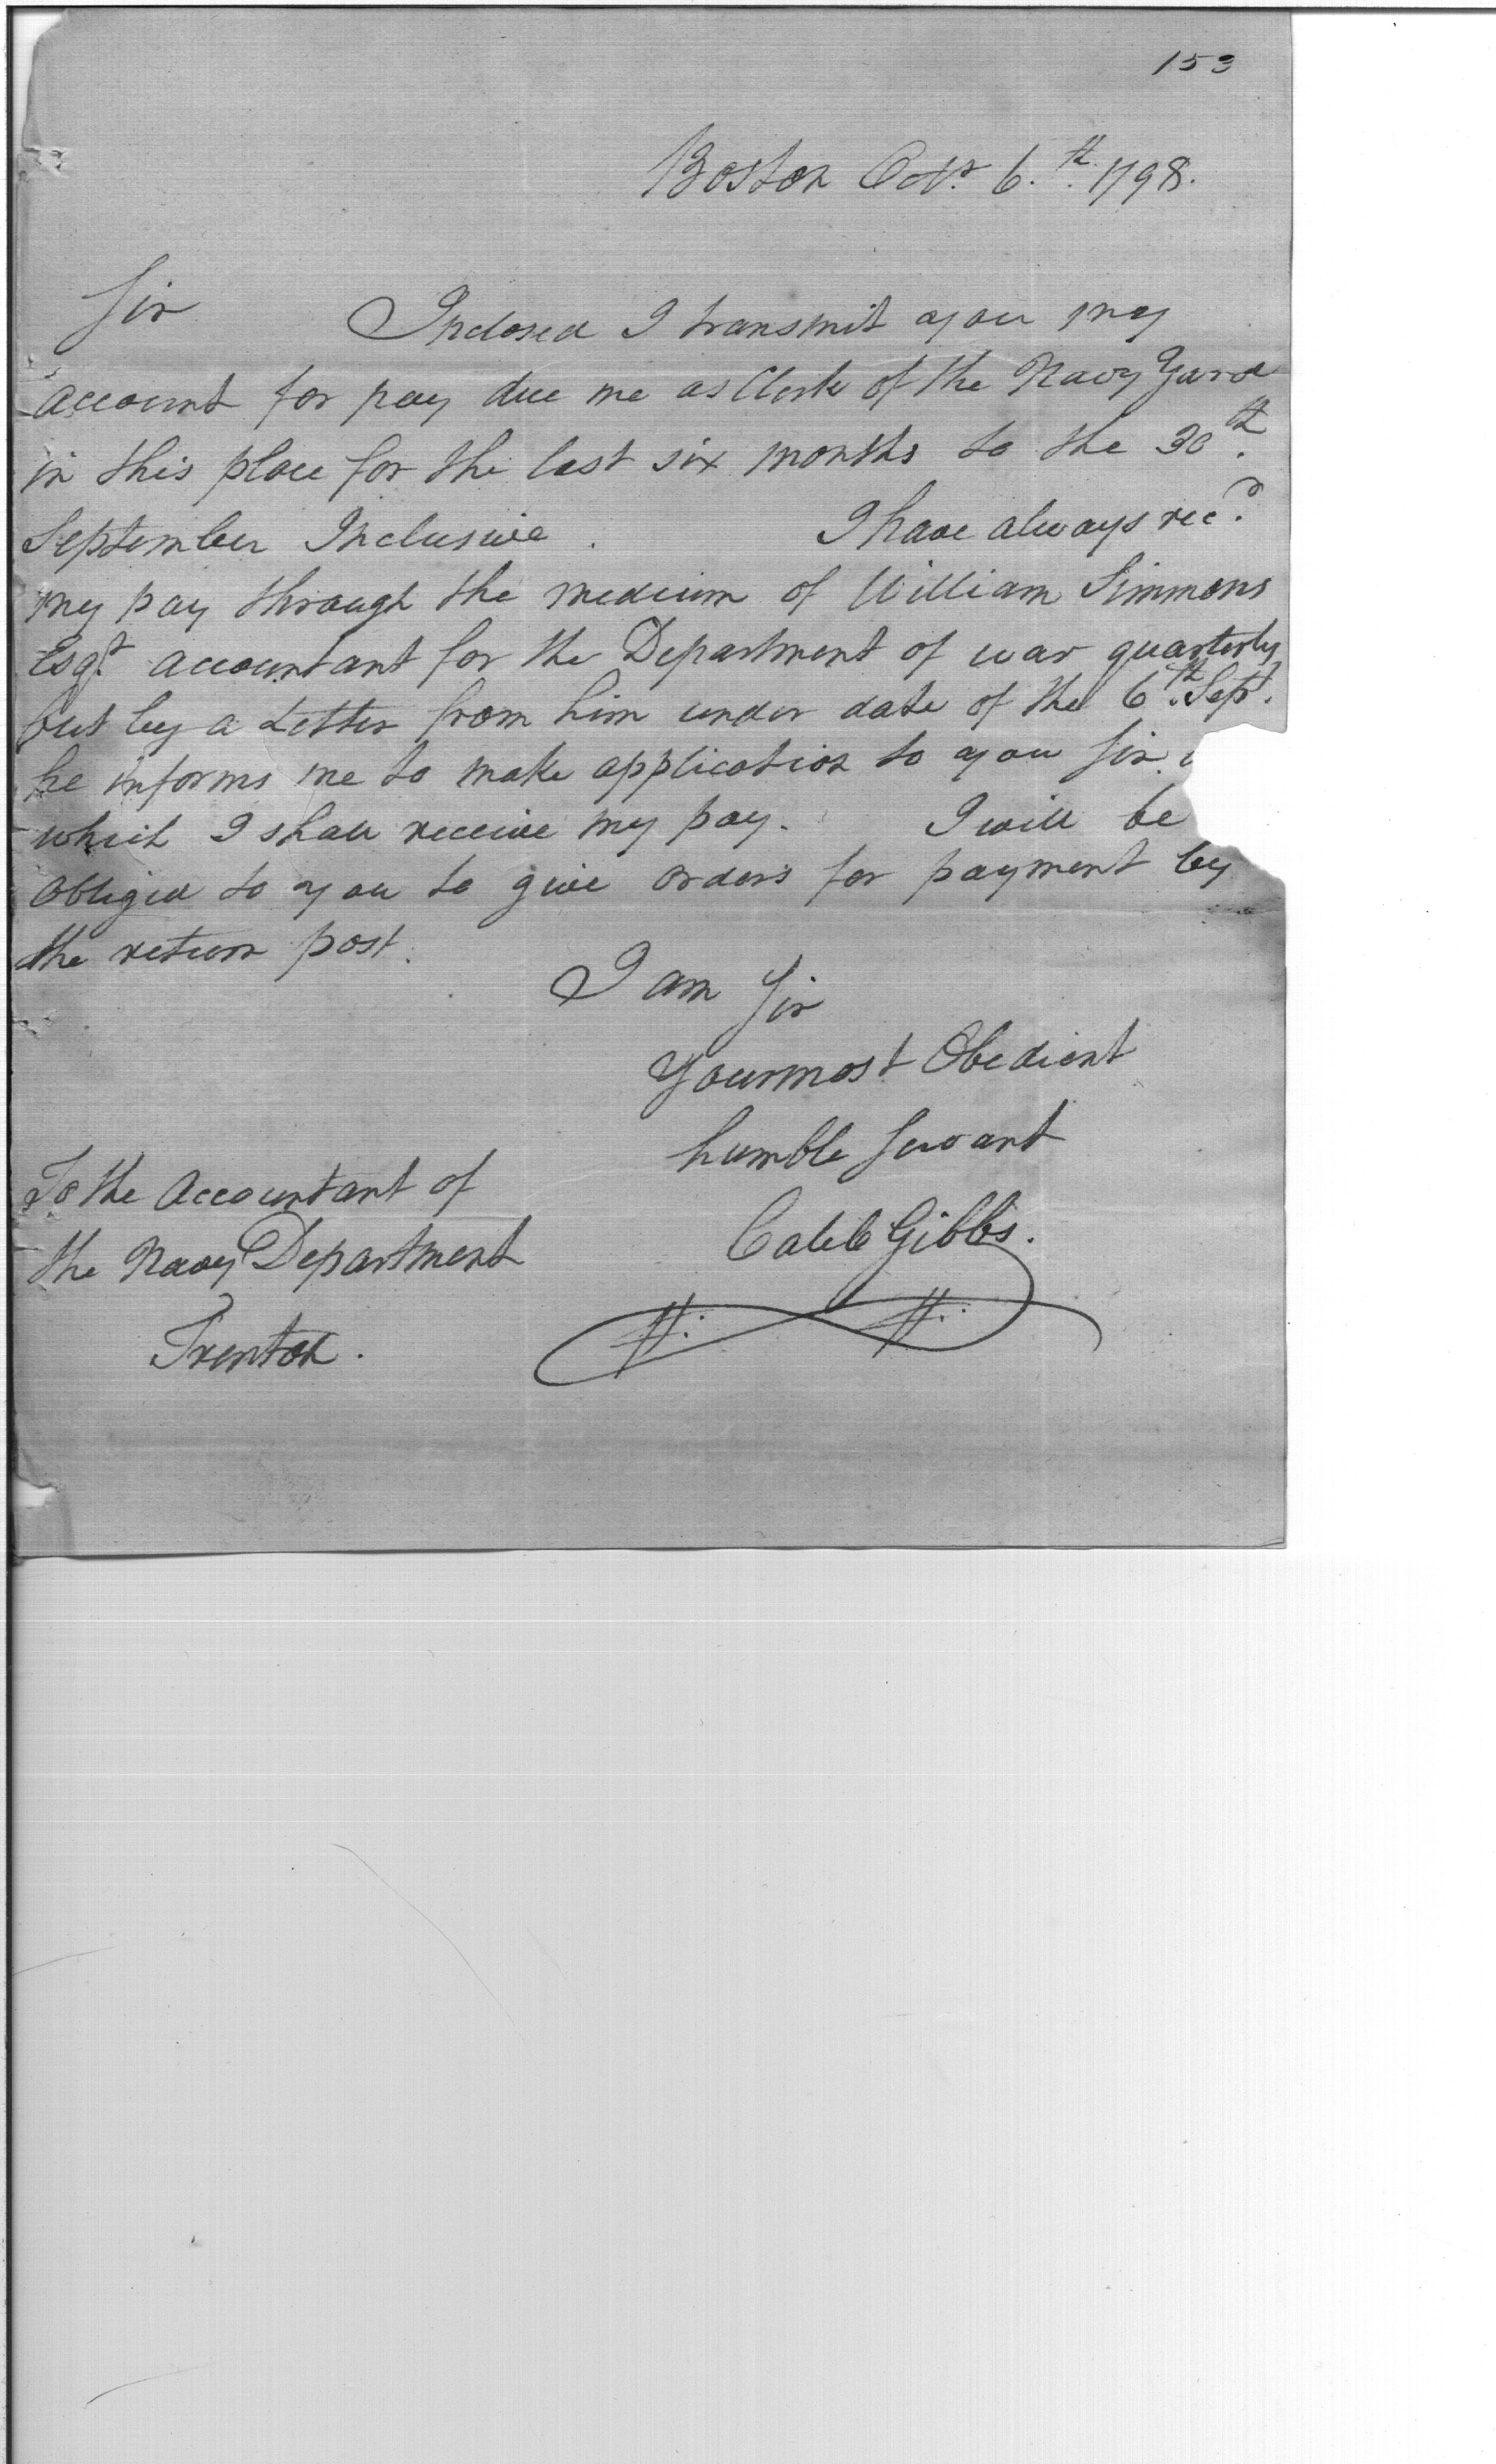 153
Boston Octr. 6.th 1798.
Sir Inclosed I transmit you my
account for pay due me as Clerk of the Navy Yard
in this place for the last six months to the 30th.
September Inclusive. I have always recd.
my pay through the medium of William Simmons
Esqr. accountant for the Department of war quarterly
but by a Letter from him under date of the 6th. Sept.
he informs me to make application to you Sir
which I shall receive my pay. I will be
obliged to you to give orders for payment by
the return post.
I am Sir
Your most Obedient
humble Servant
Caleb Gibbs.
To the Accountant of
the Navy Department
Trenton.